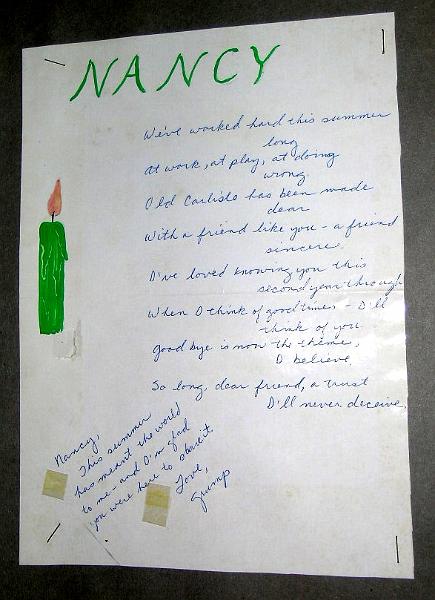 NANCY
We've worked hard this summer
long
At work, at play, at doing
wrong.
Old Carlisle has been made
dear
With a friend like you - a friend
sincere.
I've loved knowing you this
second year through
When I think of good times - I'll
think of you.
Good bye is now the theme,
I believe.
So long, dear friend, a trust
I'll never deceive.
Nancy,
This summer
has meant the world
to me - and I'm glad
you were here to share it.
Love,
Gump